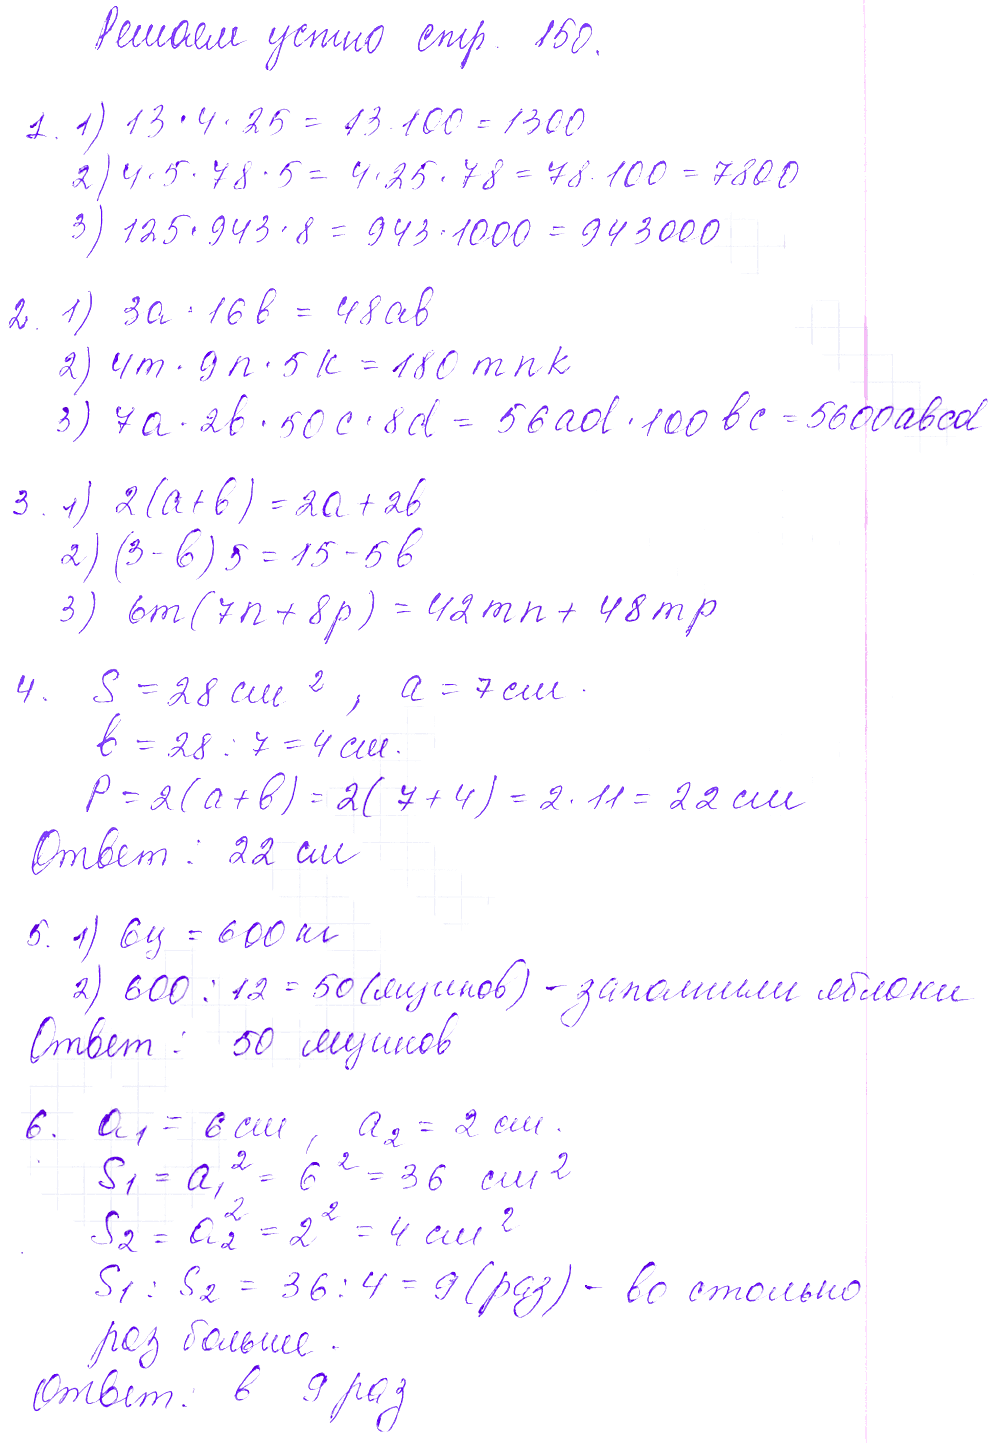 Решаем устно стр. 150.
1. 1) 13 · 4 · 25 = 13 · 100 = 1300
2) 4 · 5 · 78 · 5 = 4 · 25 · 78 = 78 · 100 = 7800
3) 125 · 943 · 8 = 943 · 1000 = 943000
2. 1) 3a · 16b = 48ab
2) 4m · 9n · 5k = 180 mnk
3) 7a · 2b · 50c · 8d = 56ad · 100 bc = 5600abcd
3. 1) 2(a+b) = 2a + 2b
2) (3 - b) 5 = 15 - 5b
3) 6m(7n + 8p) = 42mn + 48mp
4. S = 28 см², a = 7 см.
b = 28 : 7 = 4 см.
P = 2(a+b) = 2(7+4) = 2 · 11 = 22 см
Ответ: 22 см
5. 1) 6ц = 600 кг
2) 600 : 12 = 50 (ящиков) - заполнили яблоки
Ответ: 50 ящиков
6. a₁ = 6 см, a₂ = 2 см.
S₁ = a₁² = 6² = 36 см²
S₂ = a₂² = 2² = 4 см²
S₁ : S₂ = 36 : 4 = 9 (раз) - во столько
раз больше.
Ответ: в 9 раз